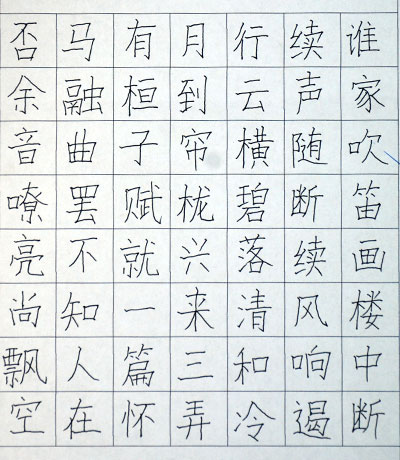 谁家吹笛画楼中断
续声随断续风响遏
行云横碧落清和冷
月到帘栊兴来三弄
有桓子赋就一篇怀
马融曲罢不知人在
否余音嘹亮尚飘空